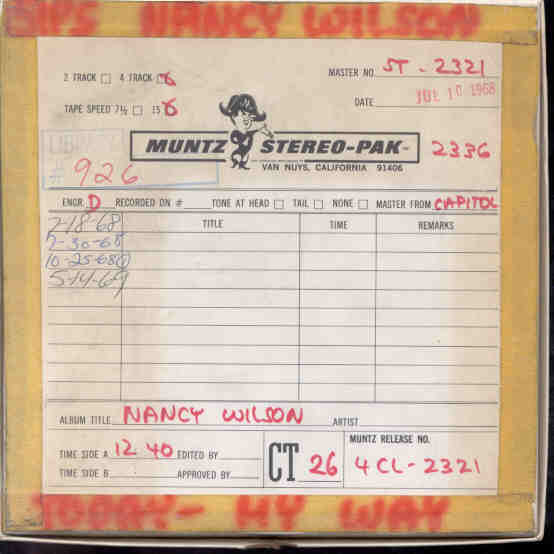 NANCY WILSON
2 TRACK 4 TRACK
MASTER NO. ST - 2321
TAPE SPEED 7½ 15
DATE JUL 10 1968
LIBRARY
# 926
MUNTZ STEREO-PAK
2336
VAN NUYS, CALIFORNIA 91406
ENGR. D RECORDED ON # TONE AT HEAD TAIL NONE MASTER FROM CAPITOL
TITLE TIME REMARKS
7-18-68
7-30-68
10-25-68
5-14-69
ALBUM TITLE NANCY WILSON ARTIST
TIME SIDE A 12 40 EDITED BY
TIME SIDE B APPROVED BY
CT 26
MUNTZ RELEASE NO.
4CL-2321
TODAY- MY WAY